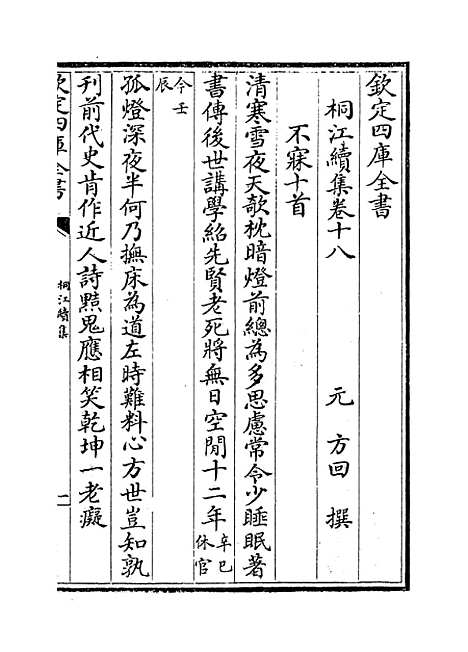 欽定四庫全書
桐江續集卷十八
元 方回 撰
不寐十首
清寒雪夜天欹枕暗燈前總為多思慮常令少睡眠著
書傳後世講學紹先賢老死將無日空閒十二年辛巳休官
今壬辰
孤燈深夜半何乃撫床為道左時難料心方世豈知孰
刊前代史肯作近人詩黠鬼應相笑乾坤一老癡
欽定四庫全書
桐江續集